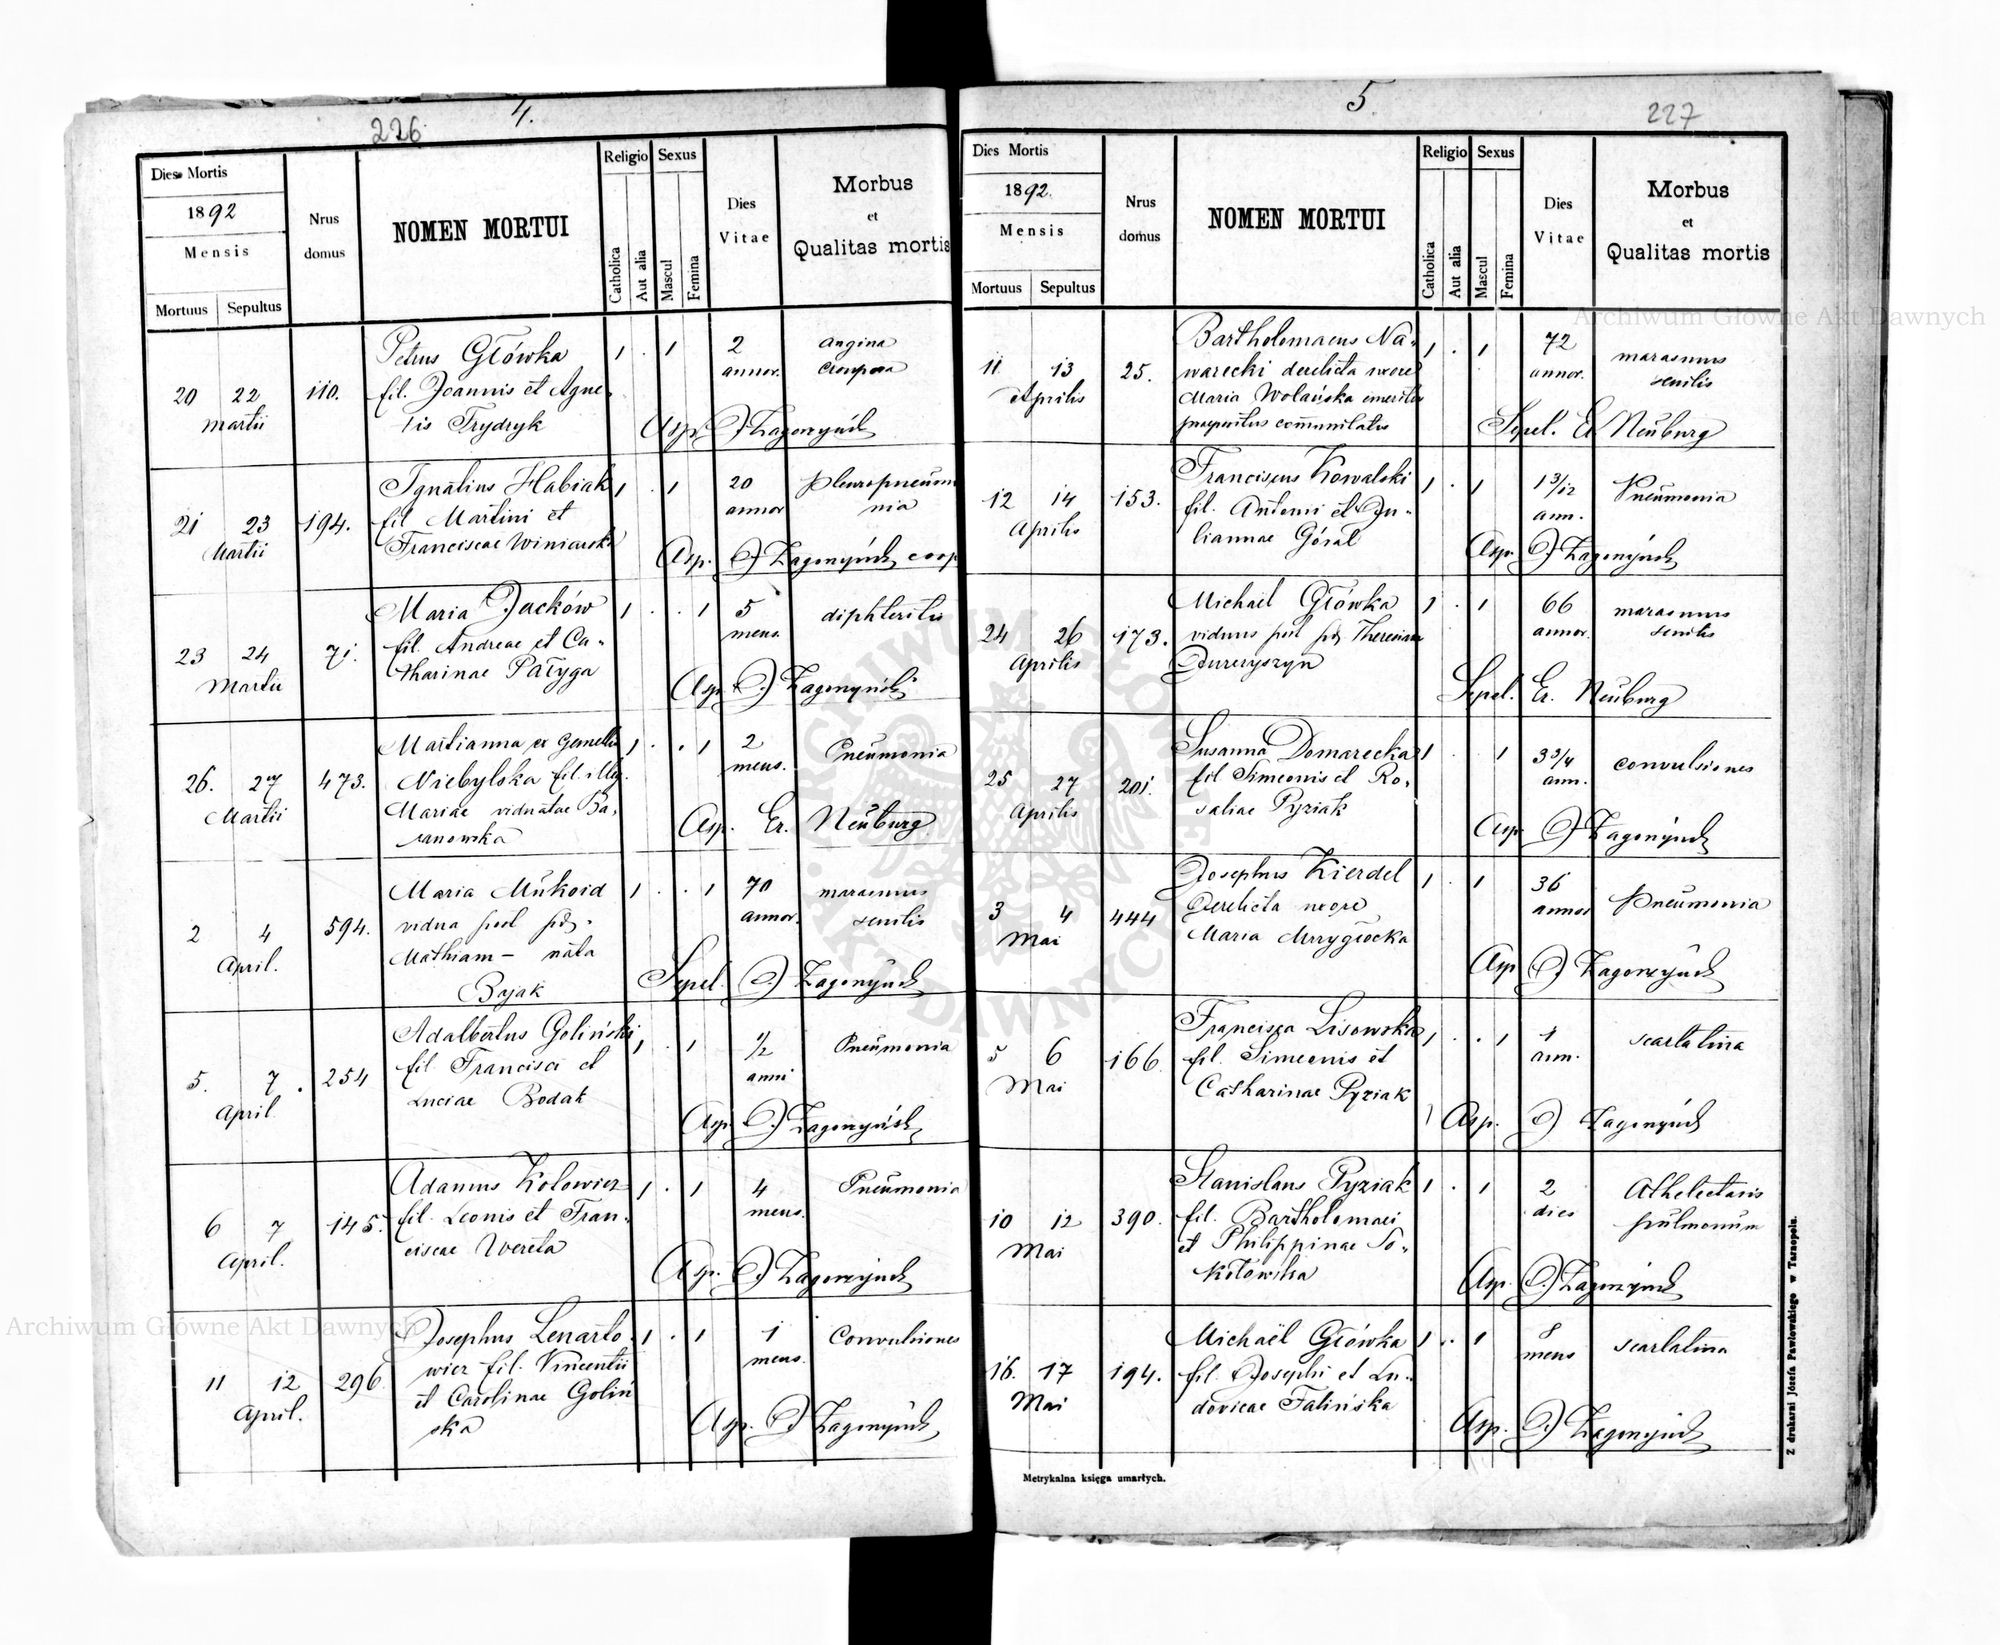 4.
226
Dies Mortis
1892
Mensis
Mortuus
Sepultus
Nrus
domus
NOMEN MORTUI
Religio
Catholica
Aut alia
Sexus
Mascul
Femina
Dies
Vitae
Morbus
et
Qualitas mortis
20 22
Martii
110.
Petrus Główka
fil. Joannis et Agne-
tis Trydryk
1 . 1
2
annor.
angina
crouposa
Asp.
21 23
Martii
194.
Ignatius Habiak
fil Martini et
Franciscae Winiarska
1 . 1
20
annor
pleuropneumo
nia
Asp.
coop
23 24
Martii
71.
Maria Jacków
fil. Andreae et Ca-
tharinae Pałyga
1 . . 1
5
mens.
diphteritis
Asp.
26. 27
Martii
473.
Marianna ex Gemellis
Niebylska fil. illeg.
Mariae viduatae Ba-
ranowska
1 . . 1
2
mens.
Pneumonia
Asp. Er. Neuburg
2 4
April.
594.
Maria Mukoid
vidua post
Mathiam - nata
Bajak
1 . . 1
70
annor.
marasmus
senilis
Sepel.
5. 7.
April
254
Adalbertus Goliński
fil. Francisci et
Luciae Bodak
1 . 1
1/2
anni
Pneumonia
Asp.
6 7
April.
145.
Adamus Kolowicz
fil. Leonis et Fran-
ciscae Wereta
1 . 1
4
mens.
Pneumonia
Asp.
11 12
April.
296.
Josephus Lenarto
wicz fil. Vincentii
et Carolinae Goliń
ska
1 . 1
1
mens.
Convulsiones
Asp.
5
227
Dies Mortis
1892.
Mensis
Mortuus
Sepultus
Nrus
domus
NOMEN MORTUI
Religio
Catholica
Aut alia
Sexus
Mascul
Femina
Dies
Vitae
Morbus
et
Qualitas mortis
11 13
Aprilis
25.
Bartholomaeus Na-
warecki derelicta uxore
Maria Wolańska emeritus
communitatis
1 . 1
72
annor.
marasmus
senilis
Sepel. Er Neuburg
12 14
Aprilis
153.
Franciscus Kowalski
fil. Antoni et Ju-
liannae Góral
1 . 1
1 3/12
ann.
Pneumonia
Asp.
24 26
Aprilis
173.
Michaël Główka
viduus post Theresiam
1 . 1
66
annor.
marasmus
senilis
Sepel. Er. Neuburg
25 27
Aprilis
201.
Susanna Domarecka
fil Simeonis et Ro-
saliae Pyziak
1 . 1
3 3/4
ann.
convulsiones
Asp
3 4
Mai
444
Josephus Kierdel
Derelicta uxore
Maria Mrzygłocka
1 . 1
36
annor
Pneumonia
Asp
5 6
Mai
166.
Francisca Lisowska
fil. Simeonis et
Catharinae Pyziak
1 . . 1
1
ann.
scarlatina
Asp.
10 12
Mai
390.
Stanislaus Pyziak
fil. Bartholomaei
et Philippinae So-
kołowska
1 . 1
2
dies
Athelectasis
pulmonum
Asp.
16. 17
Mai
194.
Michaël Główka
fil. Josephi et Lu-
dovicae Falińska
1 . 1
8
mens
scarlatina
Asp.
Metrykalna księga umarłych.
Z drukarni Józefa Pawłowskiego w Tarnopolu.
Archiwum Główne Akt Dawnych
Archiwum Główne Akt Dawnych
ARCHIWUM GŁÓWNE AKT DAWNYCH